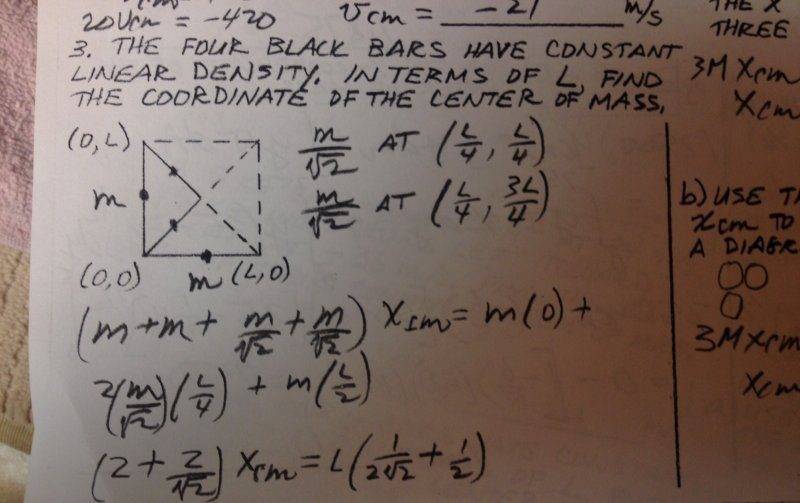 20Vcm = -420
Vcm = -21 m/s
3. THE FOUR BLACK BARS HAVE CONSTANT
LINEAR DENSITY. IN TERMS OF L, FIND
THE COORDINATE OF THE CENTER OF MASS.
(0,L)
m/√2 AT (L/4, L/4)
m
m/√2 AT (L/4, 3L/4)
(0,0) m (L,0)
(m+m+ m/√2 + m/√2) Xcm = m(0) +
2(m/√2)(L/4) + m(L/2)
(2 + 2/√2) Xcm = L(1/2√2 + 1/2)
THE X
THREE
3M Xcm
Xcm
b) USE
Xcm TO
A DIAGR
3M Xcm
Xcm